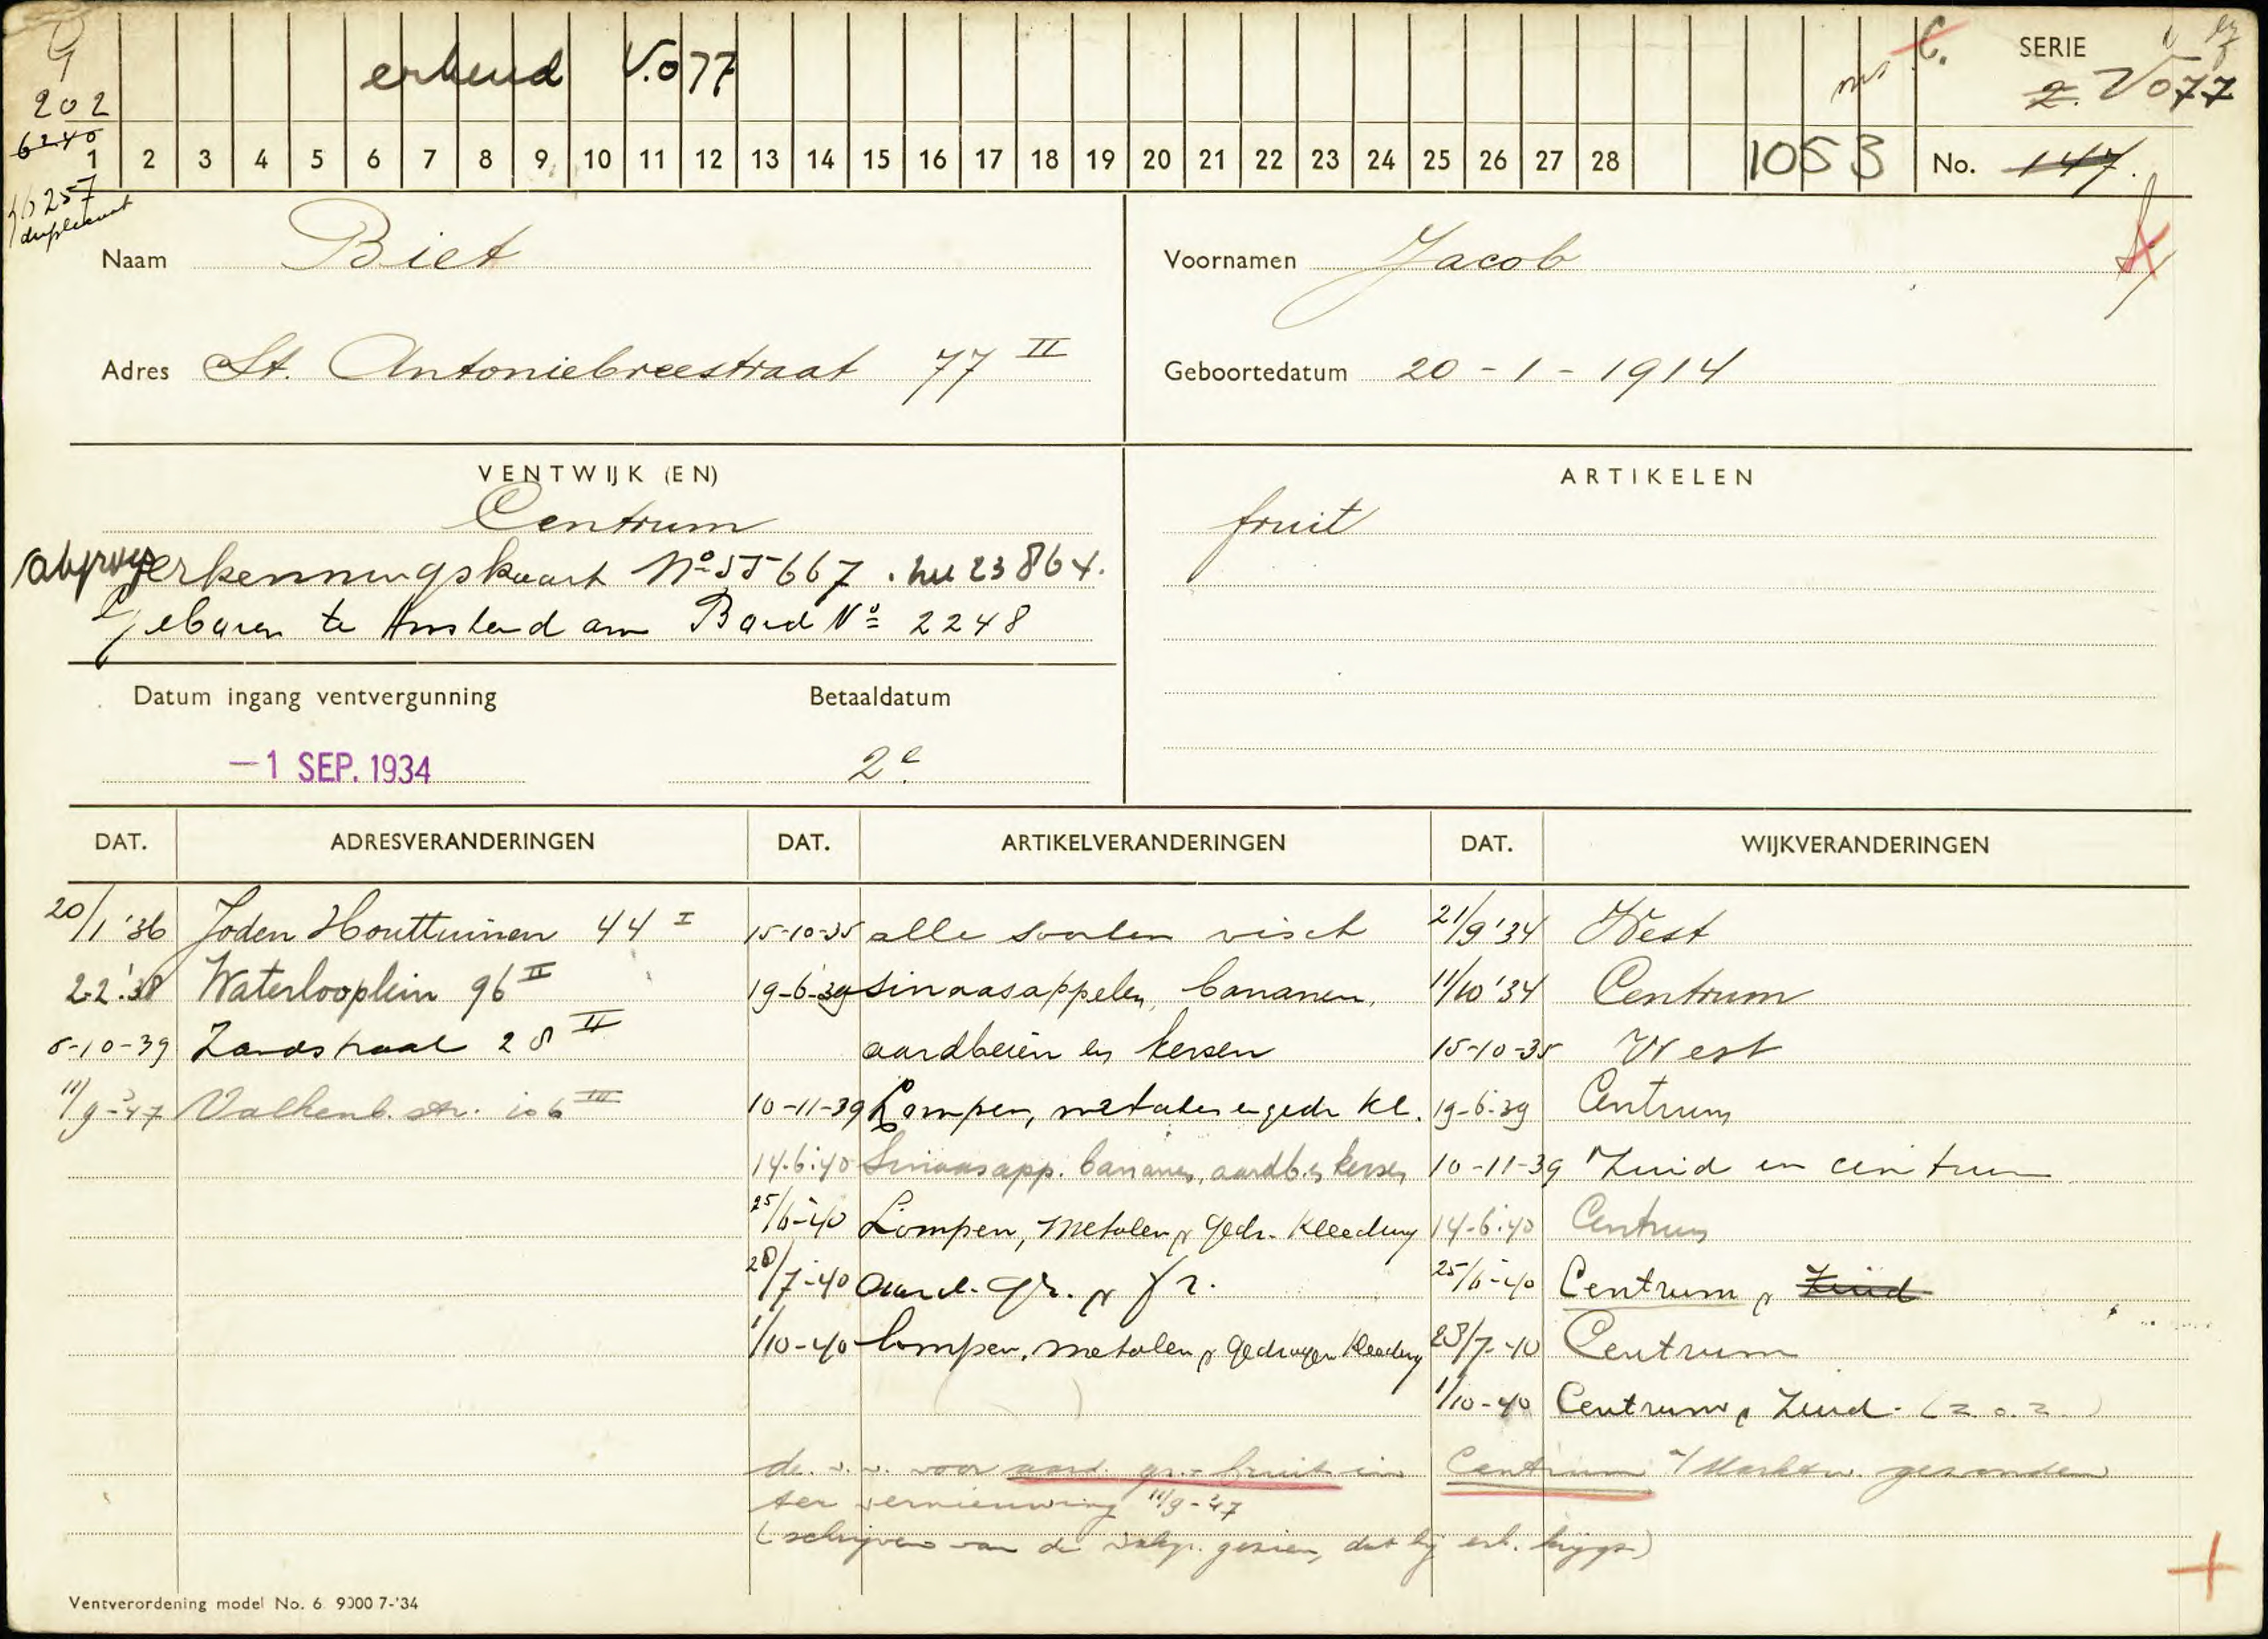 G
202
6240
erkend V.077
C.
SERIE
2. V077
1 2 3 4 5 6 7 8 9 10 11 12 13 14 15 16 17 18 19 20 21 22 23 24 25 26 27 28 1053 No. 147.
duplicaat
Naam Biet
Voornamen Jacob
Adres St. Antoniebreestraat 77 II
Geboortedatum 20-1-1914
VENTWIJK (EN)
Centrum
erkenningskaart No 55667. nu 23864.
Geboren te Amsterdam Baud No 2248
ARTIKELEN
fruit
Datum ingang ventvergunning Betaaldatum
-1 SEP. 1934 2e
DAT. ADRESVERANDERINGEN DAT. ARTIKELVERANDERINGEN DAT. WIJKVERANDERINGEN
20/1 '36 Joden Houttuinen 44 I 15-10-35 alle soorten visch 21/9 '34 West
2-2.'38 Waterlooplein 96 II 19-6-39 sinaasappelen, bananen, 11/10 '34 Centrum
6-10-39 Zandstraat 28 II aardbeien en kersen 15-10-35 West
11/9-'47 Valkenb. str. 106 III 10-11-39 Lompen, metalen en gedr kl. 19-6-39 Centrum
14-6-40 Sinaasapp. bananen, aardb. en kersen 10-11-39 Zuid en centrum
25/6-40 Lompen, metalen & gedr. kleeding 14-6-40 Centrum
28/7-40 aard. gr. & fr. 25/6-40 Centrum & Zuid
1/10-40 lompen, metalen & gedragen kleeding 28/7-40 Centrum
1/10-40 Centrum & Zuid. (z.o.z.)
de v.v. voor aard. gr. - fruit in Centrum a/ Marktw. gezonden
ter vernieuwing 11/9-'47
(schrijven van de gezien, dat hij erk. krijgt)
Ventverordening model No. 6 9000 7-'34